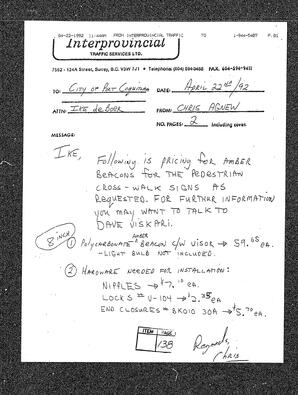 04-22-1992 11:44AM FROM INTERPROVINCIAL TRAFFIC TO 1-944-5407 P.01
Interprovincial
TRAFFIC SERVICES LTD.
7552 - 124A Street, Surrey, B.C. V3W 7J1 • Telephone: (604)
TO: CITY OF PORT COQUITLAM DATE: APRIL 22nd/92
ATTN: IKE de BOER FROM: CHRIS AGNEW
NO. PAGES: 2 including cover.
MESSAGE:
IKE,
FOLLOWING IS PRICING FOR AMBER
BEACONS FOR THE PEDESTRIAN
CROSS-WALK SIGNS AS
REQUESTED. FOR FURTHER INFORMATION
YOU MAY WANT TO TALK TO
DAVE VISKARI.
8 INCH
AMBER
① POLYCARBONATE BEACON C/W VISOR → 59.65 ea.
- LIGHT BULB NOT INCLUDED.
② HARDWARE NEEDED FOR INSTALLATION:
NIPPLES → $7.10 ea.
LOCKS # V-104 → $2.35 ea
END CLOSURES # BK010 30A → $5.70 ea.
ITEM PAGE
138
Regards,
Chris